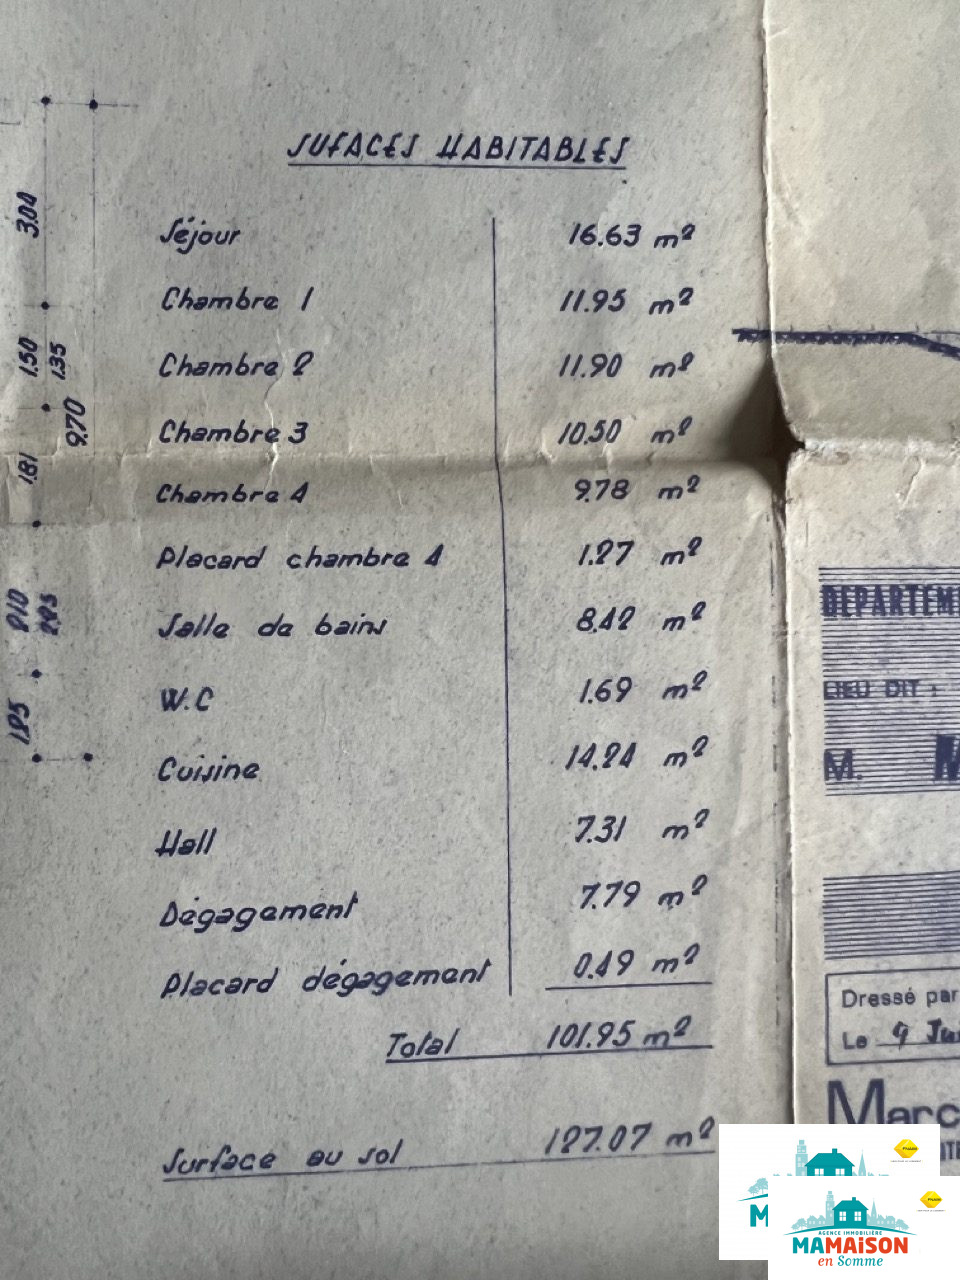 SUFACES HABITABLES
Séjour 16.63 m²
Chambre 1 11.95 m²
Chambre 2 11.90 m²
Chambre 3 10.50 m²
Chambre 4 9.78 m²
Placard chambre 4 1.27 m²
Salle de bains 8.42 m²
W.C 1.69 m²
Cuisine 14.24 m²
Hall 7.31 m²
Dégagement 7.79 m²
Placard dégagement 0.49 m²
Total 101.95 m²
Surface au sol 127.07 m²
3.04
1.50
1.35
9.70
1.81
DEPARTEM
LIEU DIT :
M. M
Dressé par
Le 9
Marc
AGENCE IMMOBILIÈRE
MAMAISON
en Somme